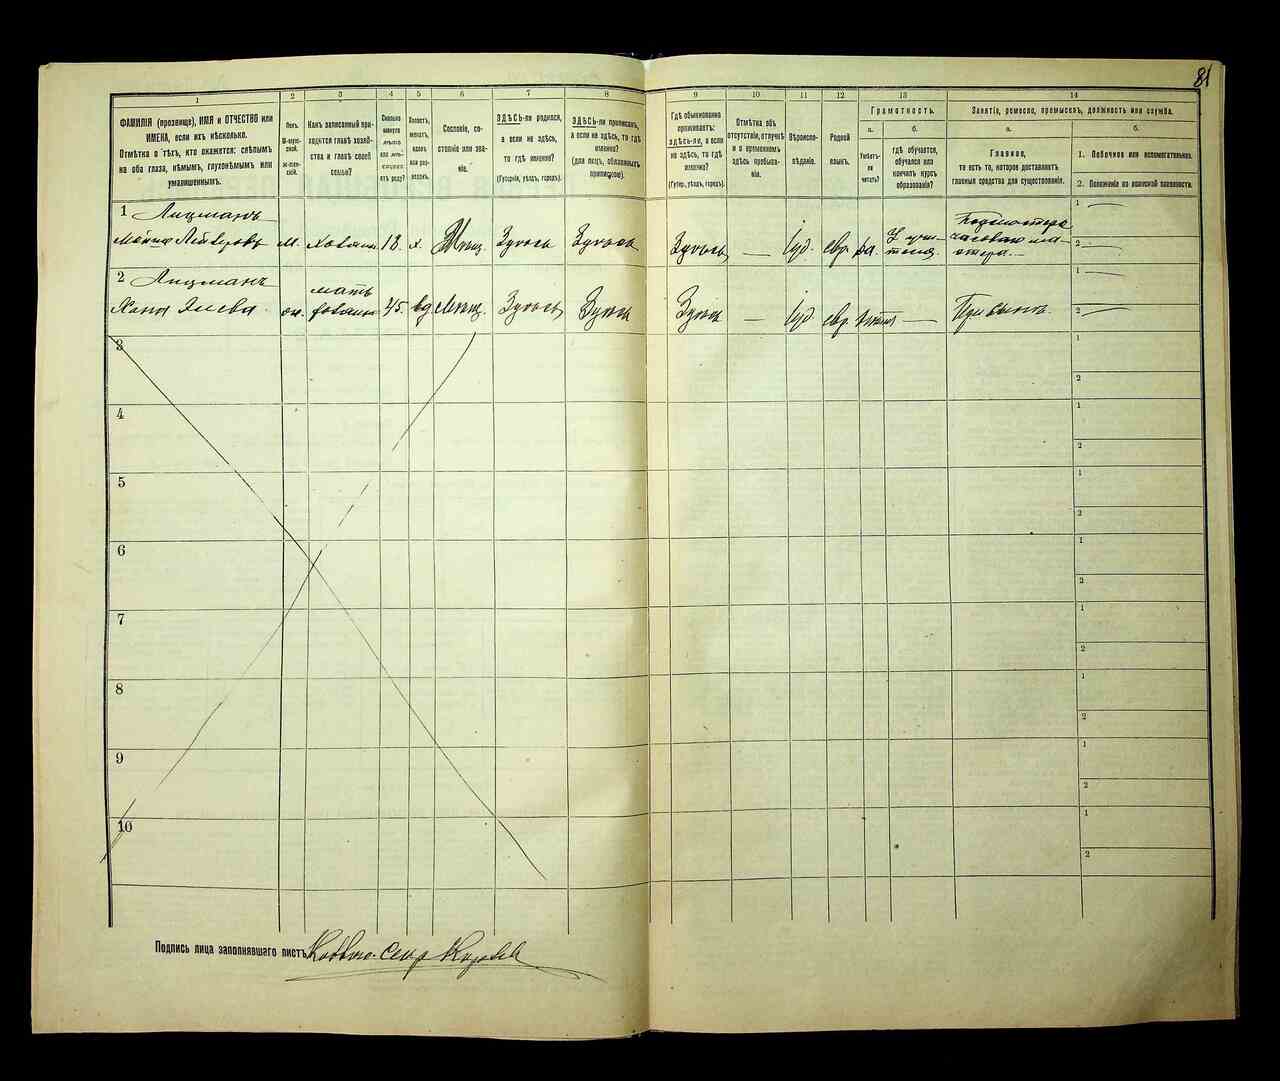 81
1
2
3
4
5
6
7
8
9
10
11
12
13
14
ФАМИЛІЯ (прозвище), ИМЯ и ОТЧЕСТВО или
ИМЕНА, если ихъ нѣсколько.
Отмѣтка о тѣхъ, кто окажется: слѣпымъ
на оба глаза, нѣмымъ, глухонѣмымъ или
умалишеннымъ.
Полъ.
М-муж-
ской.
Ж-жен-
скій.
Какъ записанный при-
ходится главѣ хозяй-
ства и главѣ своей
семьи?
Сколько
минуло
лѣтъ
или мѣся-
цевъ
отъ роду?
Холостъ,
женатъ,
вдовъ
или раз-
веденъ.
Сословіе, со-
стояніе или зва-
ніе.
ЗДѢСЬ-ли родился,
а если не здѣсь,
то гдѣ именно?
(Губернія, уѣздъ, городъ).
ЗДѢСЬ-ли приписанъ,
а если не здѣсь, то гдѣ
именно?
(для лицъ, обязанныхъ
припискою).
Гдѣ обыкновенно
проживаетъ:
здѣсь-ли, а если
не здѣсь, то гдѣ
именно?
(Губер., уѣздъ, городъ).
Отмѣтка объ
отсутствіи, отлучкѣ
и о временномъ
здѣсь пребыва-
ніи.
Вѣроиспо-
вѣданіе.
Родной
языкъ.
Грамотность.
а.
б.
Умѣетъ-
ли
читать?
гдѣ обучается,
обучался или
кончилъ курсъ
образованія?
Занятіе, ремесло, промыселъ, должность или служба.
а.
б.
Главное,
то есть то, которое доставляетъ
главныя средства для существованія.
1. Побочное или вспомогательное.
2. Положеніе по воинской повинности.
1 Лицманъ
Лейзеровъ М. хозяинъ 18. х. Мѣщ. Здѣсь Здѣсь Здѣсь — Іуд. евр. да. У учи-
теля. Подмастерье
часоваго ма-
стера.
1 —
2 —
2 Лицманъ
Хана м
мать
хозяина 45. вд. Мѣщ. Здѣсь Здѣсь Здѣсь — Іуд. евр. — При сынѣ.
1 —
2 —
3
1
2
4
1
2
5
1
2
6
1
2
7
1
2
8
1
2
9
1
2
10
1
2
Подпись лица заполнявшаго листъ